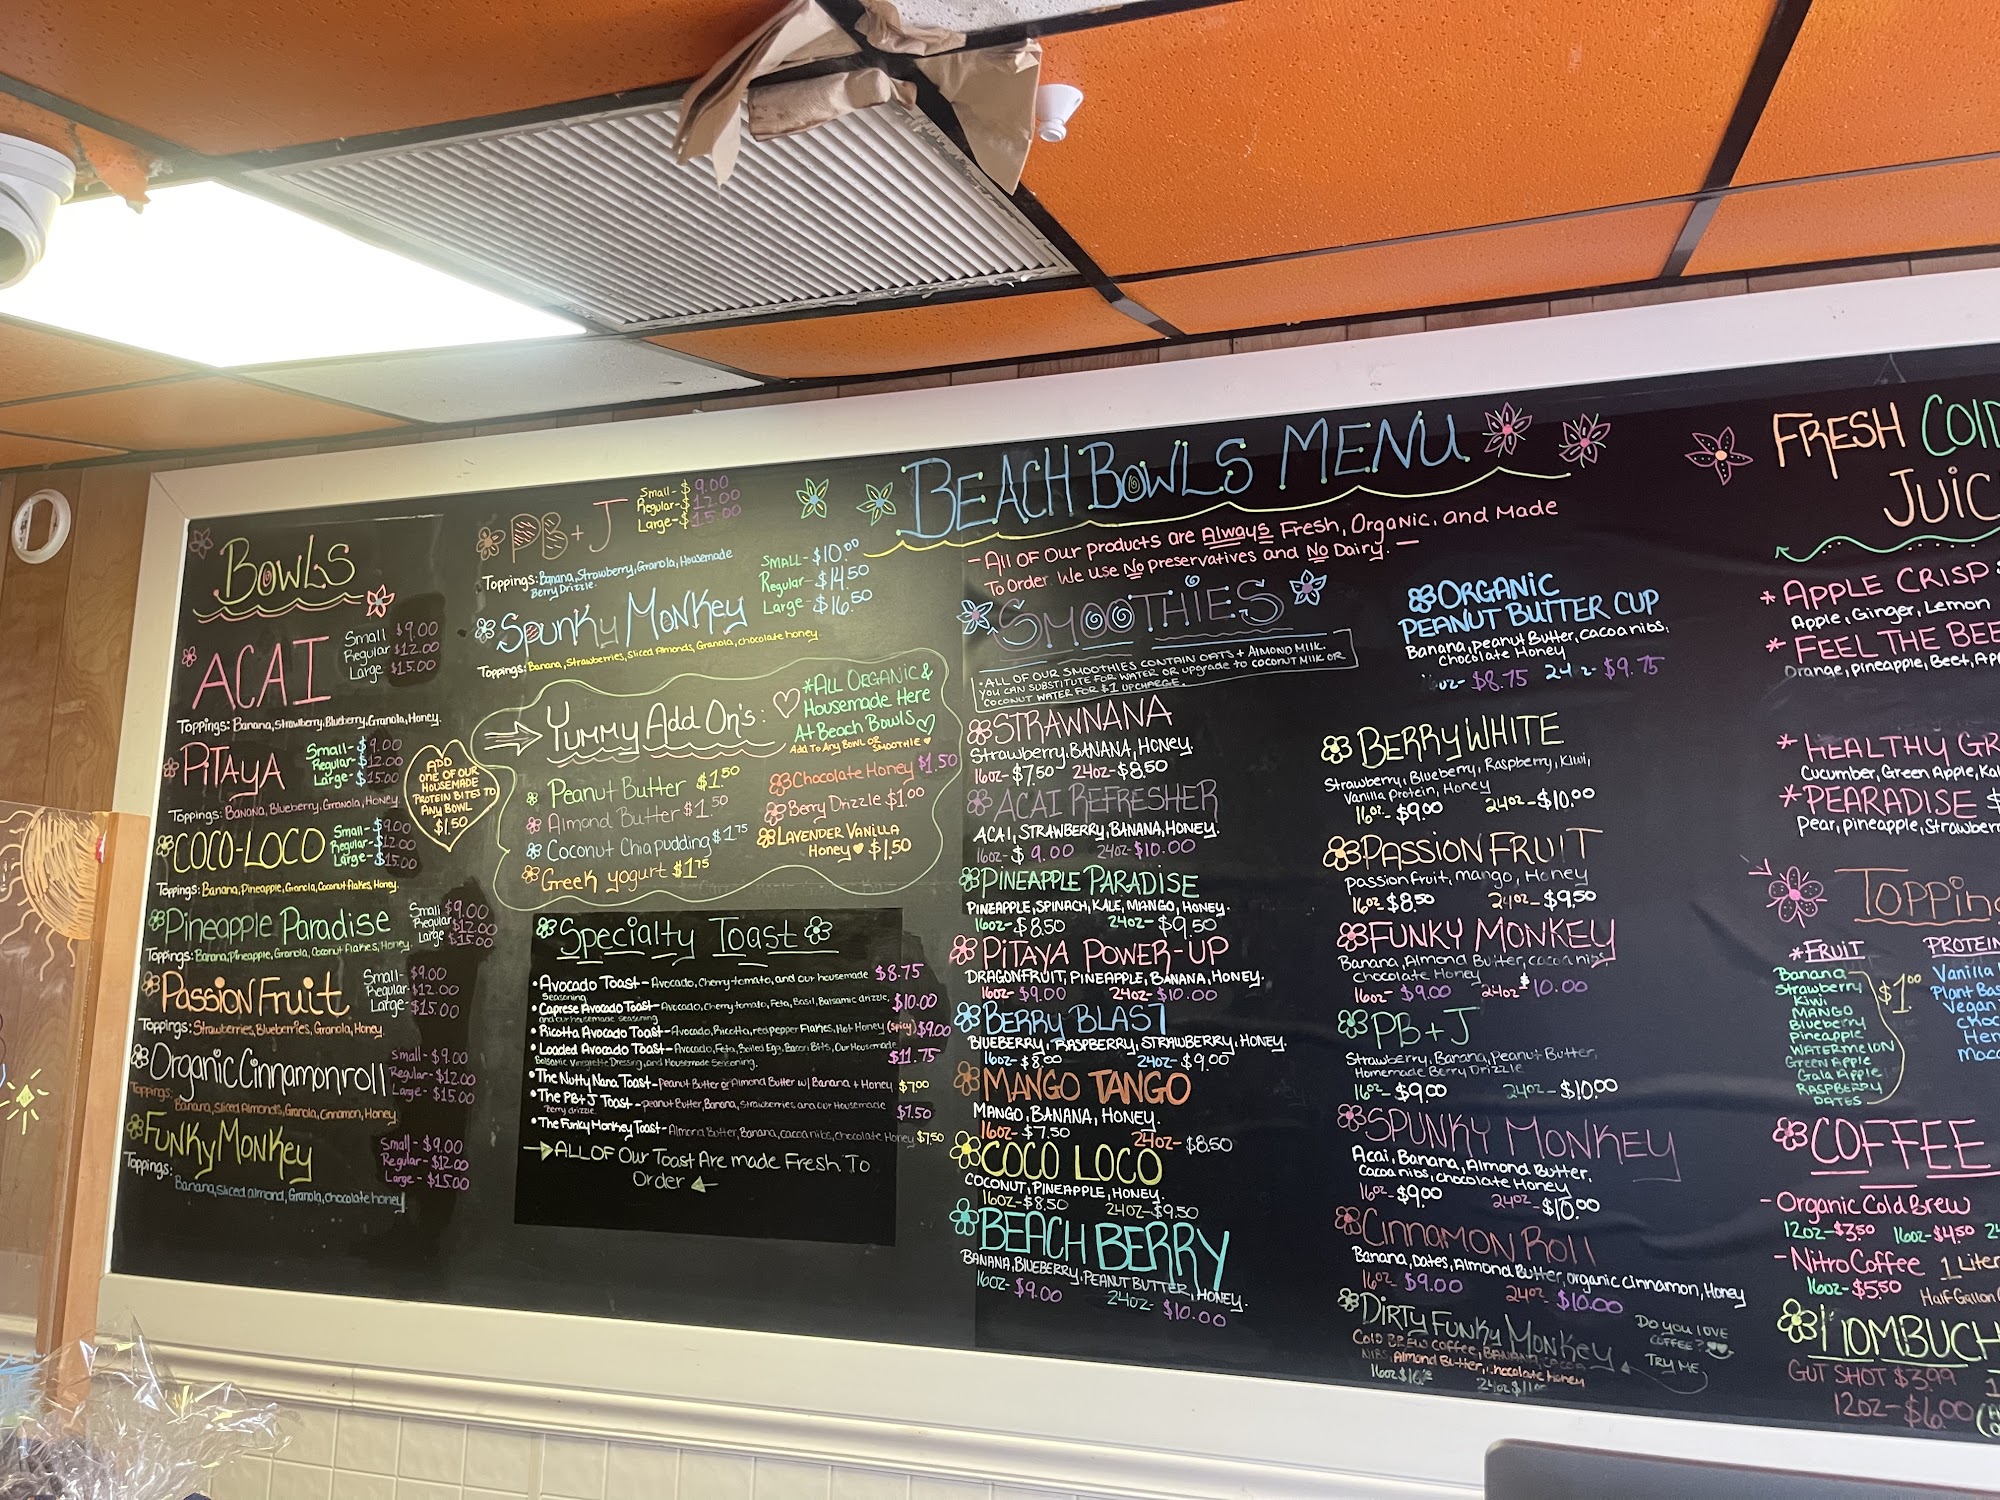 BEACH BOWLS MENU
- All of our products are Always Fresh, Organic, and Made
To Order. We use No preservatives and No Dairy.
BOWLS
ACAI
Small $9.00
Regular $12.00
Large $15.00
Toppings: Banana, Strawberry, Blueberry, Granola, Honey.
PiTAYA
Small- $9.00
Regular- $12.00
Large- $15.00
Toppings: Banana, Blueberry, Granola, Honey.
COCO-LOCO
Small- $9.00
Regular- $12.00
Large- $15.00
Toppings: Banana, Pineapple, Granola, Coconut flakes, Honey.
Pineapple Paradise
Small $9.00
Regular $12.00
Large $15.00
Toppings: Banana, Pineapple, Granola, Coconut flakes, Honey.
Passion Fruit
Small- $9.00
Regular- $12.00
Large- $15.00
Toppings: Strawberries, Blueberries, Granola, Honey
Organic Cinnamonroll
Small- $9.00
Regular- $12.00
Large- $15.00
Toppings:
Banana, Sliced Almonds, Granola, Cinnamon, Honey
Funky Monkey
Small- $9.00
Regular- $12.00
Large- $15.00
Toppings:
Banana, Sliced almond, Granola, chocolate honey.
PB+J
Small- $9.00
Regular- $12.00
Large- $15.00
Toppings: Banana, Strawberry, Granola, Housemade
Berry Drizzle.
Spunky Monkey
Small- $10.00
Regular- $14.50
Large- $16.50
Toppings: Banana, Strawberries, Sliced Almonds, Granola, chocolate honey.
ADD
ONE OF OUR
HOUSEMADE
PROTEIN BITES TO
ANY BOWL
$1.50
Yummy Add On's:
*All Organic &
Housemade Here
At Beach Bowls
Add To Any BOWL OR SMOOTHIE
Peanut Butter $1.50
Almond Butter $1.50
Coconut Chia pudding $1.75
Greek yogurt $1.75
Chocolate Honey $1.50
Berry Drizzle $1.00
LAVENDER VANILLA
Honey $1.50
Specialty Toast
• Avocado Toast- Avocado, Cherry tomato, and our housemade $8.75
Seasoning
• Caprese Avocado Toast- Avocado, Cherry tomato, Feta, Basil, Balsamic drizzle, $10.00
and our housemade seasoning
• Ricotta Avocado Toast- Avocado, Ricotta, red pepper Flakes, Hot Honey (spicy) $9.00
• Loaded Avocado Toast- Avocado, Feta, Boiled Egg, Bacon Bits, Our Housemade $11.75
Balsamic Vinagrette Dressing, and Housemade Seasoning.
• The Nutty Nana Toast- peanut Butter or Almond Butter w/ Banana + Honey $7.00
• The PB+J Toast- peanut Butter, Banana, Strawberries and our Housemade $7.50
Berry drizzle.
• The Funky Monkey Toast- Almond Butter, Banana, cacao nibs, chocolate Honey $7.50
ALL OF Our Toast Are made Fresh To
Order
SMOOTHIES
• ALL OF OUR SMOOTHIES CONTAIN OATS + ALMOND MILK.
YOU CAN SUBSTITUTE FOR WATER OR upgrade to COCONUT MILK OR
COCONUT WATER FOR $1 UPCHARGE.
STRAWNANA
Strawberry, BANANA, HONEY.
16oz- $7.50 24oz- $8.50
ACAI REFRESHER
ACAI, STRAWBERRY, BANANA, HONEY.
16oz- $9.00 24oz- $10.00
PINEAPPLE PARADISE
PINEAPPLE, SPINACH, KALE, MANGO, HONEY.
16oz- $8.50 24oz- $9.50
PiTAYA POWER-UP
DRAGONFRUIT, PINEAPPLE, BANANA, HONEY.
16oz- $9.00 24oz- $10.00
BERRY BLAST
BLUEBERRY, RASPBERRY, STRAWBERRY, HONEY.
16oz- $8.00 24oz- $9.00
MANGO TANGO
MANGO, BANANA, HONEY.
16oz- $7.50 24oz- $8.50
COCO LOCO
COCONUT, PINEAPPLE, HONEY.
16oz- $8.50 24oz- $9.50
BEACH BERRY
BANANA, BLUEBERRY, PEANUT BUTTER, HONEY.
16oz- $9.00 24oz- $10.00
ORGANIC
PEANUT BUTTER CUP
Banana, peanut Butter, cacao nibs,
Chocolate Honey
$8.75 $9.75
BERRY WHITE
Strawberry, Blueberry, Raspberry, Kiwi,
Vanilla Protein, Honey
16oz- $9.00 24oz- $10.00
PASSION FRUIT
Passion fruit, mango, Honey
16oz $8.50 24oz- $9.50
FUNKY MONKEY
Banana, Almond Butter, cacao nibs,
Chocolate Honey
16oz- $9.00 24oz $10.00
PB+J
Strawberry, Banana, Peanut Butter,
Homemade Berry Drizzle
16oz- $9.00 24oz- $10.00
SPUNKY MONKEY
Acai, Banana, Almond Butter,
Cacao nibs, chocolate Honey
16oz- $9.00 24oz- $10.00
CINNAMON ROLL
Banana, Dates, Almond Butter, organic cinnamon, Honey
16oz- $9.00 24oz- $10.00
DIRTY FUNKY MONKEY
COLD BREW COFFEE, BANANA, CACAO
NIBS, Almond Butter, chocolate honey
DO YOU LOVE
COFFEE?
TRY ME
FRESH
JUIC
* APPLE CRISP
Apple, Ginger, Lemon
* FEEL THE BEE
Orange, pineapple, Beet,
* HEALTHY GR
Cucumber, Green Apple,
* PEARADISE
Pear, pineapple,
TOPPIN
*FRUIT
Banana
Strawberry
Kiwi
MANGO
Blueberry
Pineapple
WATERMELON
Green Apple
Gala Apple
RASPBERRY
DATES
$1.00
PROTEIN
Vanilla
Plant Bas
Vegan
COFFEE
- Organic Cold Brew
12oz- $3.50 16oz- $4.50
- Nitro Coffee 1 Liter
16oz- $5.50 Half Gallon
KOMBUCH
GUT SHOT $3.99
12oz- $6.00